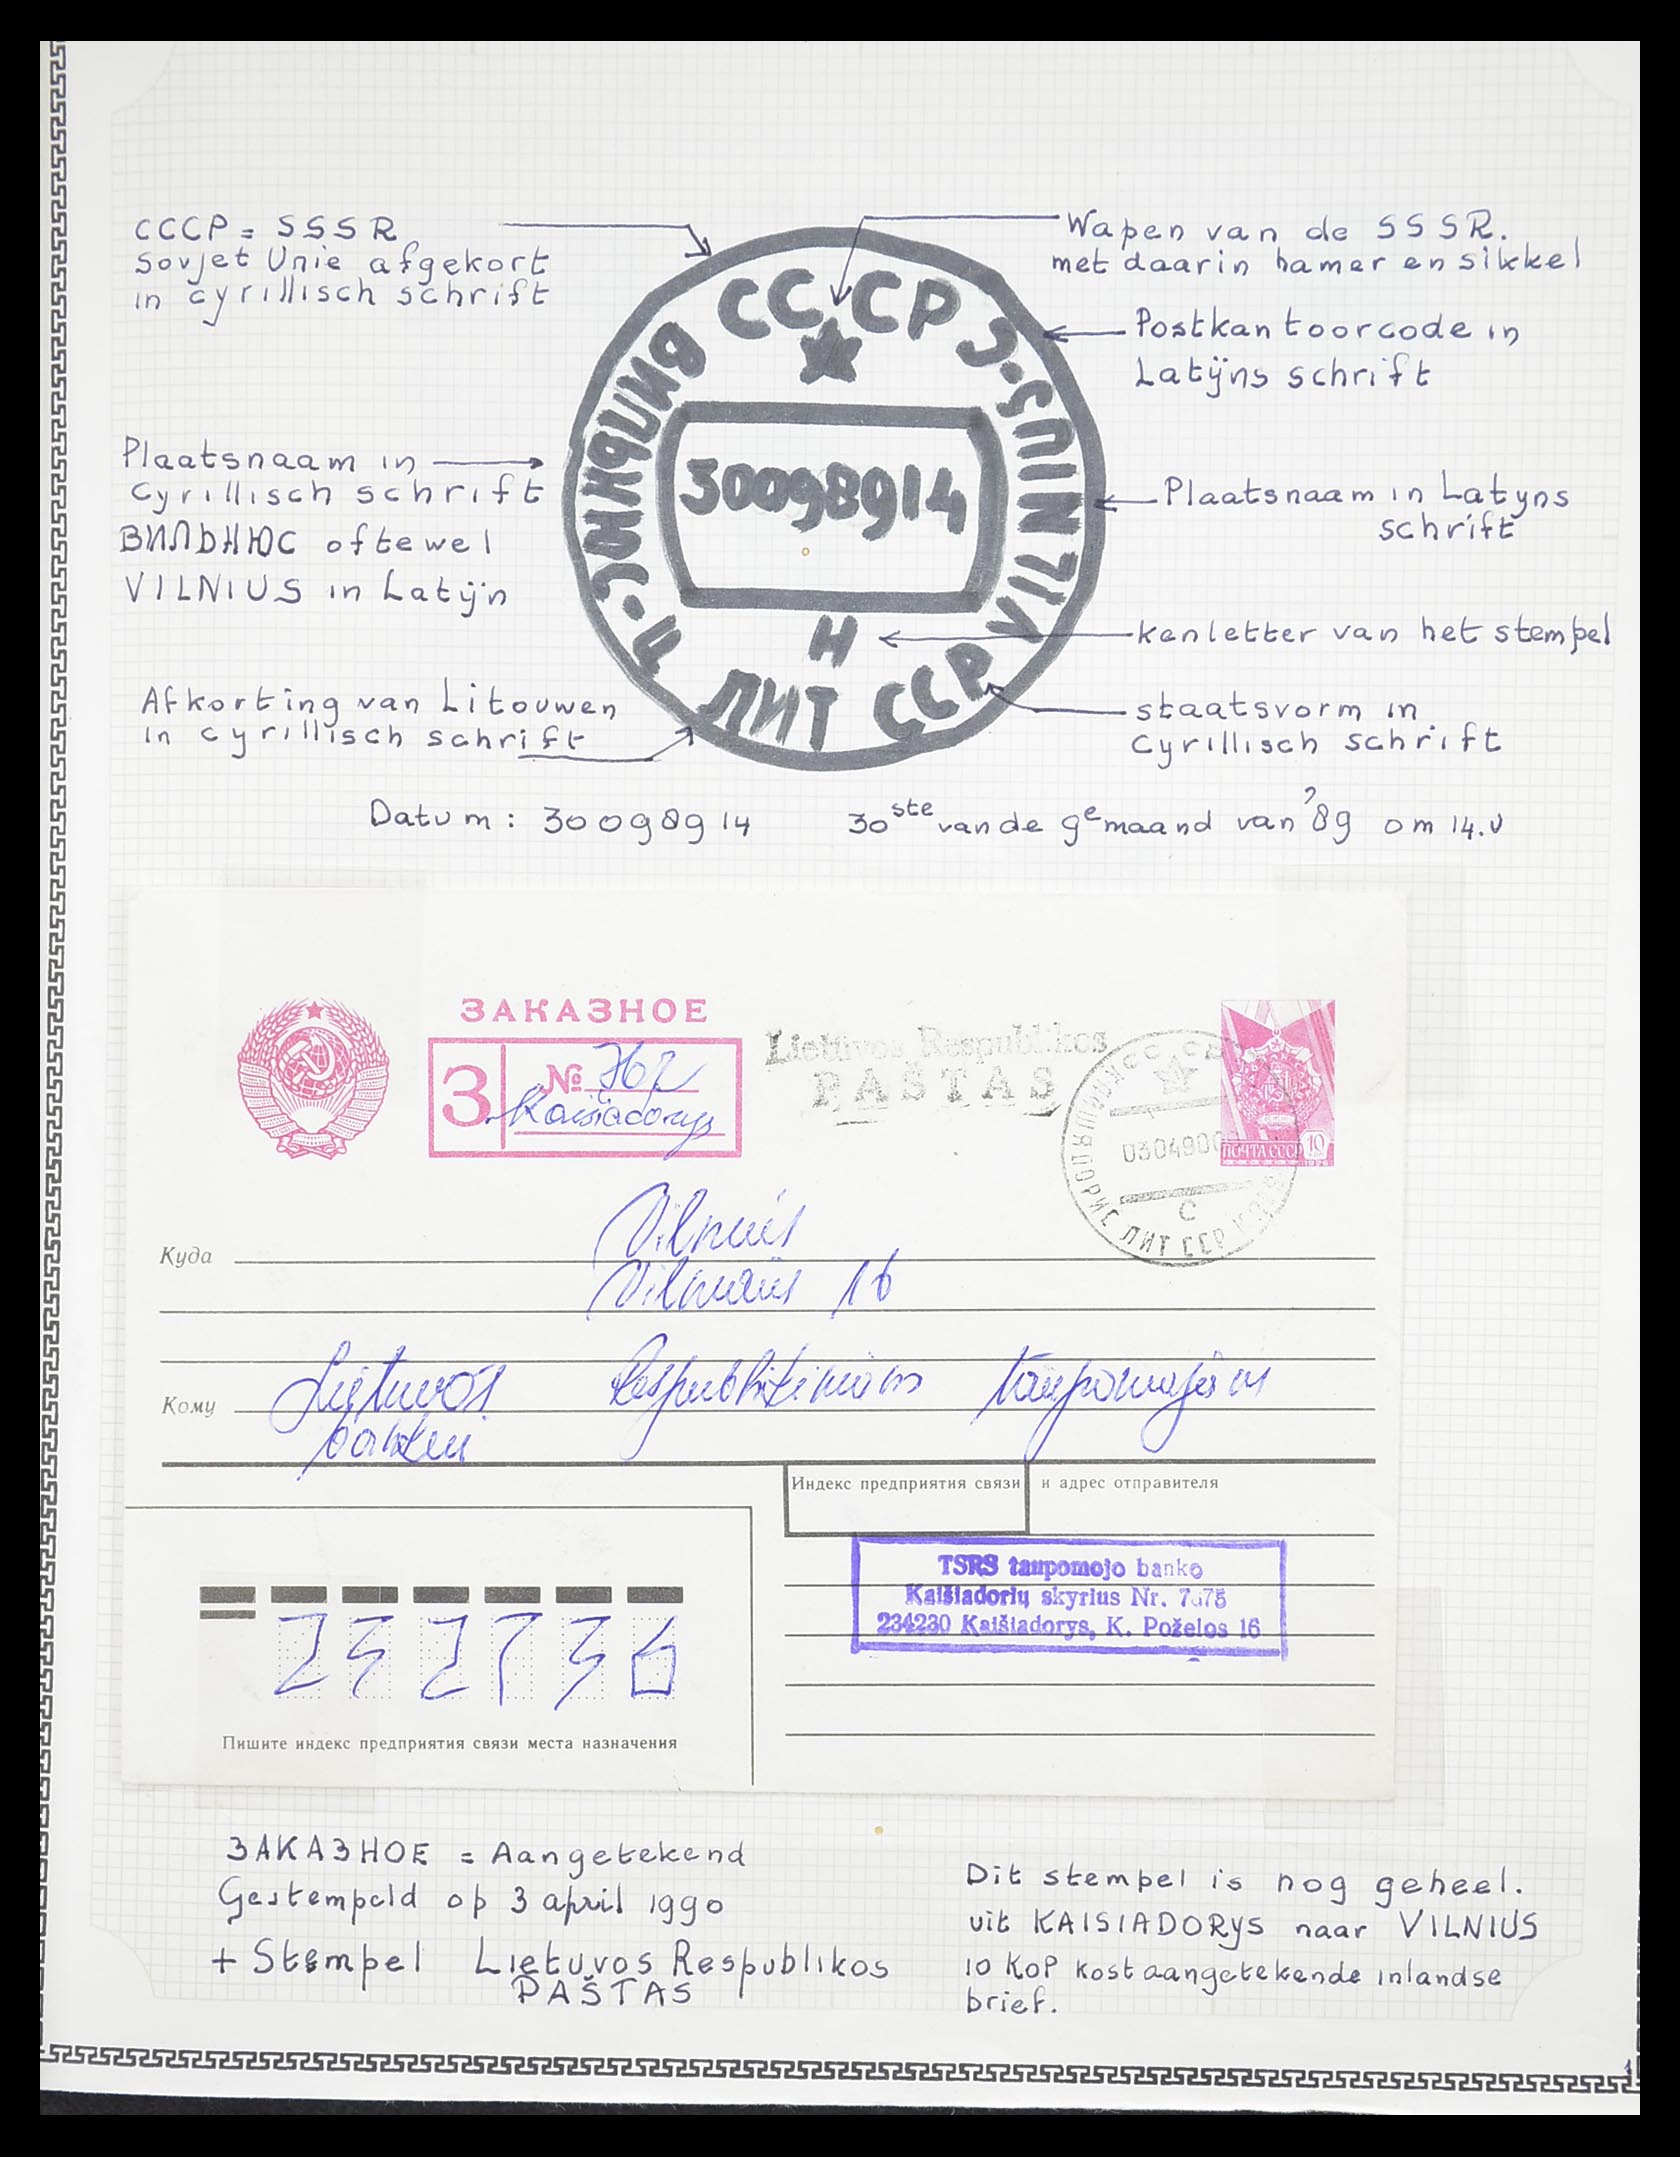 CCCP = SSSR
Sovjet Unie afgekort
in cyrillisch schrift
Wapen van de SSSR.
met daarin hamer en sikkel
Postkantoorcode in
Latijns schrift
СССР
ВИЛЬНЮС • Ц
VILNIUS • C
30098914
Н
ЛИТ ССР
Plaatsnaam in
Cyrillisch schrift
ВИЛЬНЮС oftewel
VILNIUS in Latijn
Plaatsnaam in Latyns
schrift
kenletter van het stempel
Afkorting van Litouwen
in cyrillisch schrift
staatsvorm in
Cyrillisch schrift
Datum: 30098914 30ste van de 9e maand van '89 om 14.U
ЗАКАЗНОЕ
З № 762
Kaisiadorys
Lietuvos Respublikos
PAŠTAS
ПОЧТА СССР 10
ЛИТ ССР
С
Куда Vilnius
Vilniaus 16
Кому Lietuvos Respublikiniam taupomajam
bankui
Индекс предприятия связи и адрес отправителя
TSRS taupomojo banko
Kaišiadorių skyrius Nr.
234230 Kaišiadorys, K. Poželos 16
Пишите индекс предприятия связи места назначения
ЗАКАЗНОЕ = Aangetekend
Gestempeld op 3 april 1990
+ Stempel Lietuvos Respublikos
PAŠTAS
Dit stempel is nog geheel.
uit KAISIADORYS naar VILNIUS
10 KOP kost aangetekende inlandse
brief.
1